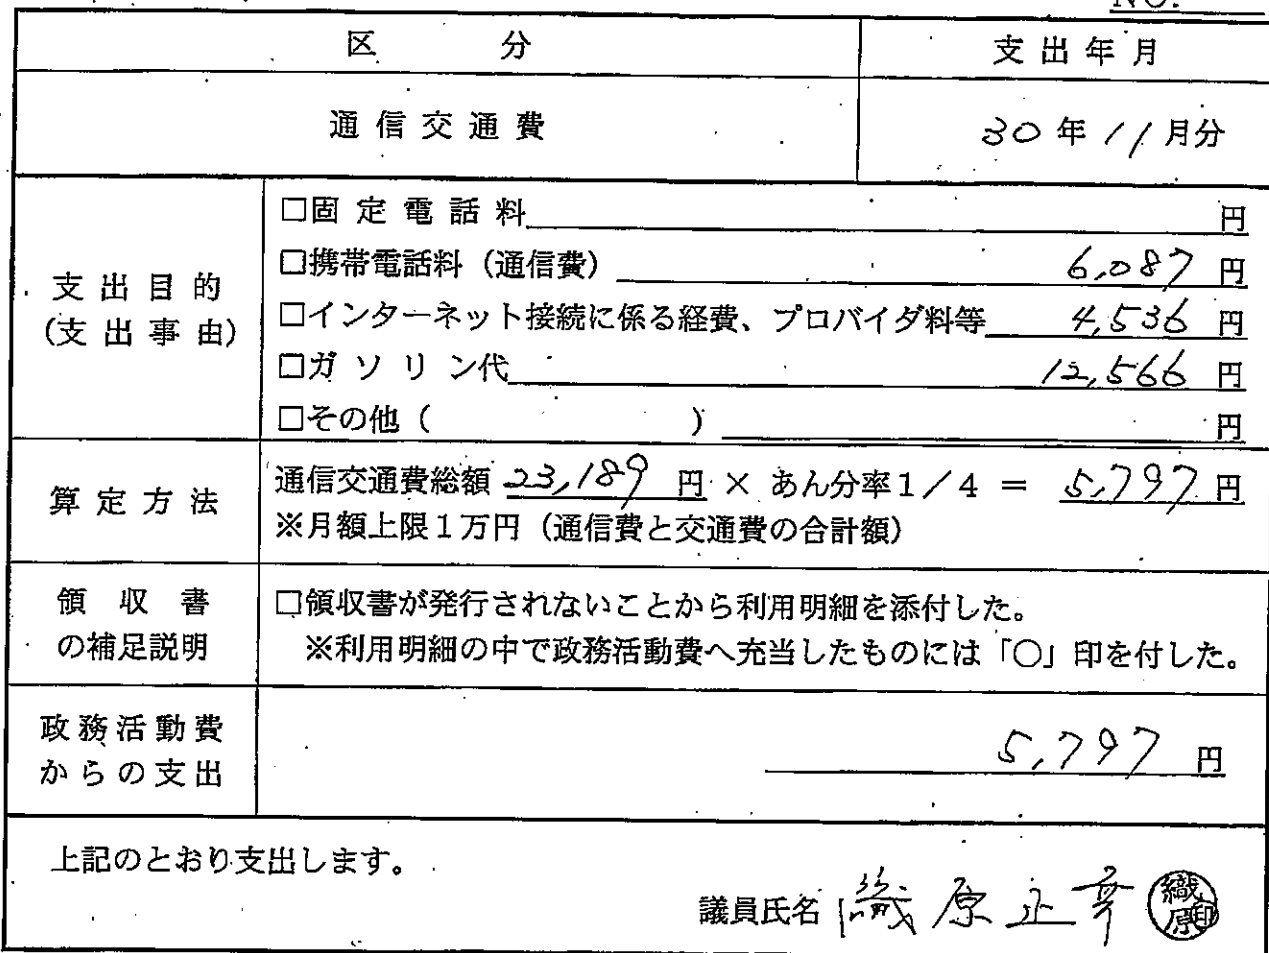 NO.
区 分 支出年月
通信交通費 30年11月分
支出目的
(支出事由)
□固定電話料 円
□携帯電話料（通信費） 6,087 円
□インターネット接続に係る経費、プロバイダ料等 4,536 円
□ガソリン代 12,566 円
□その他（ ） 円
算定方法
通信交通費総額 23,189 円 × あん分率1／4 ＝ 5,797 円
※月額上限1万円（通信費と交通費の合計額）
領収書
の補足説明
□領収書が発行されないことから利用明細を添付した。
※利用明細の中で政務活動費へ充当したものには「○」印を付した。
政務活動費
からの支出
5,797 円
上記のとおり支出します。
議員氏名 織原正幸 織原印